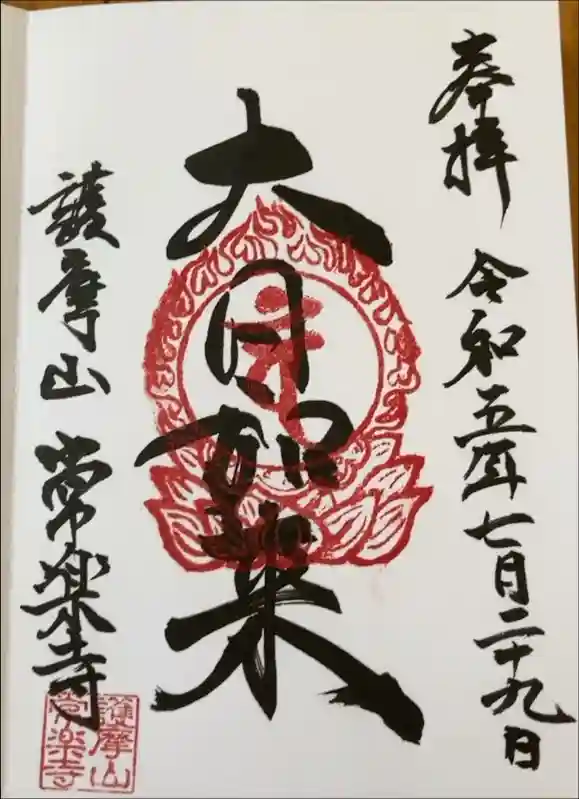 奉拝 令和五年七月二十九日
大日如来
護摩山 常楽寺
護摩山
常楽寺